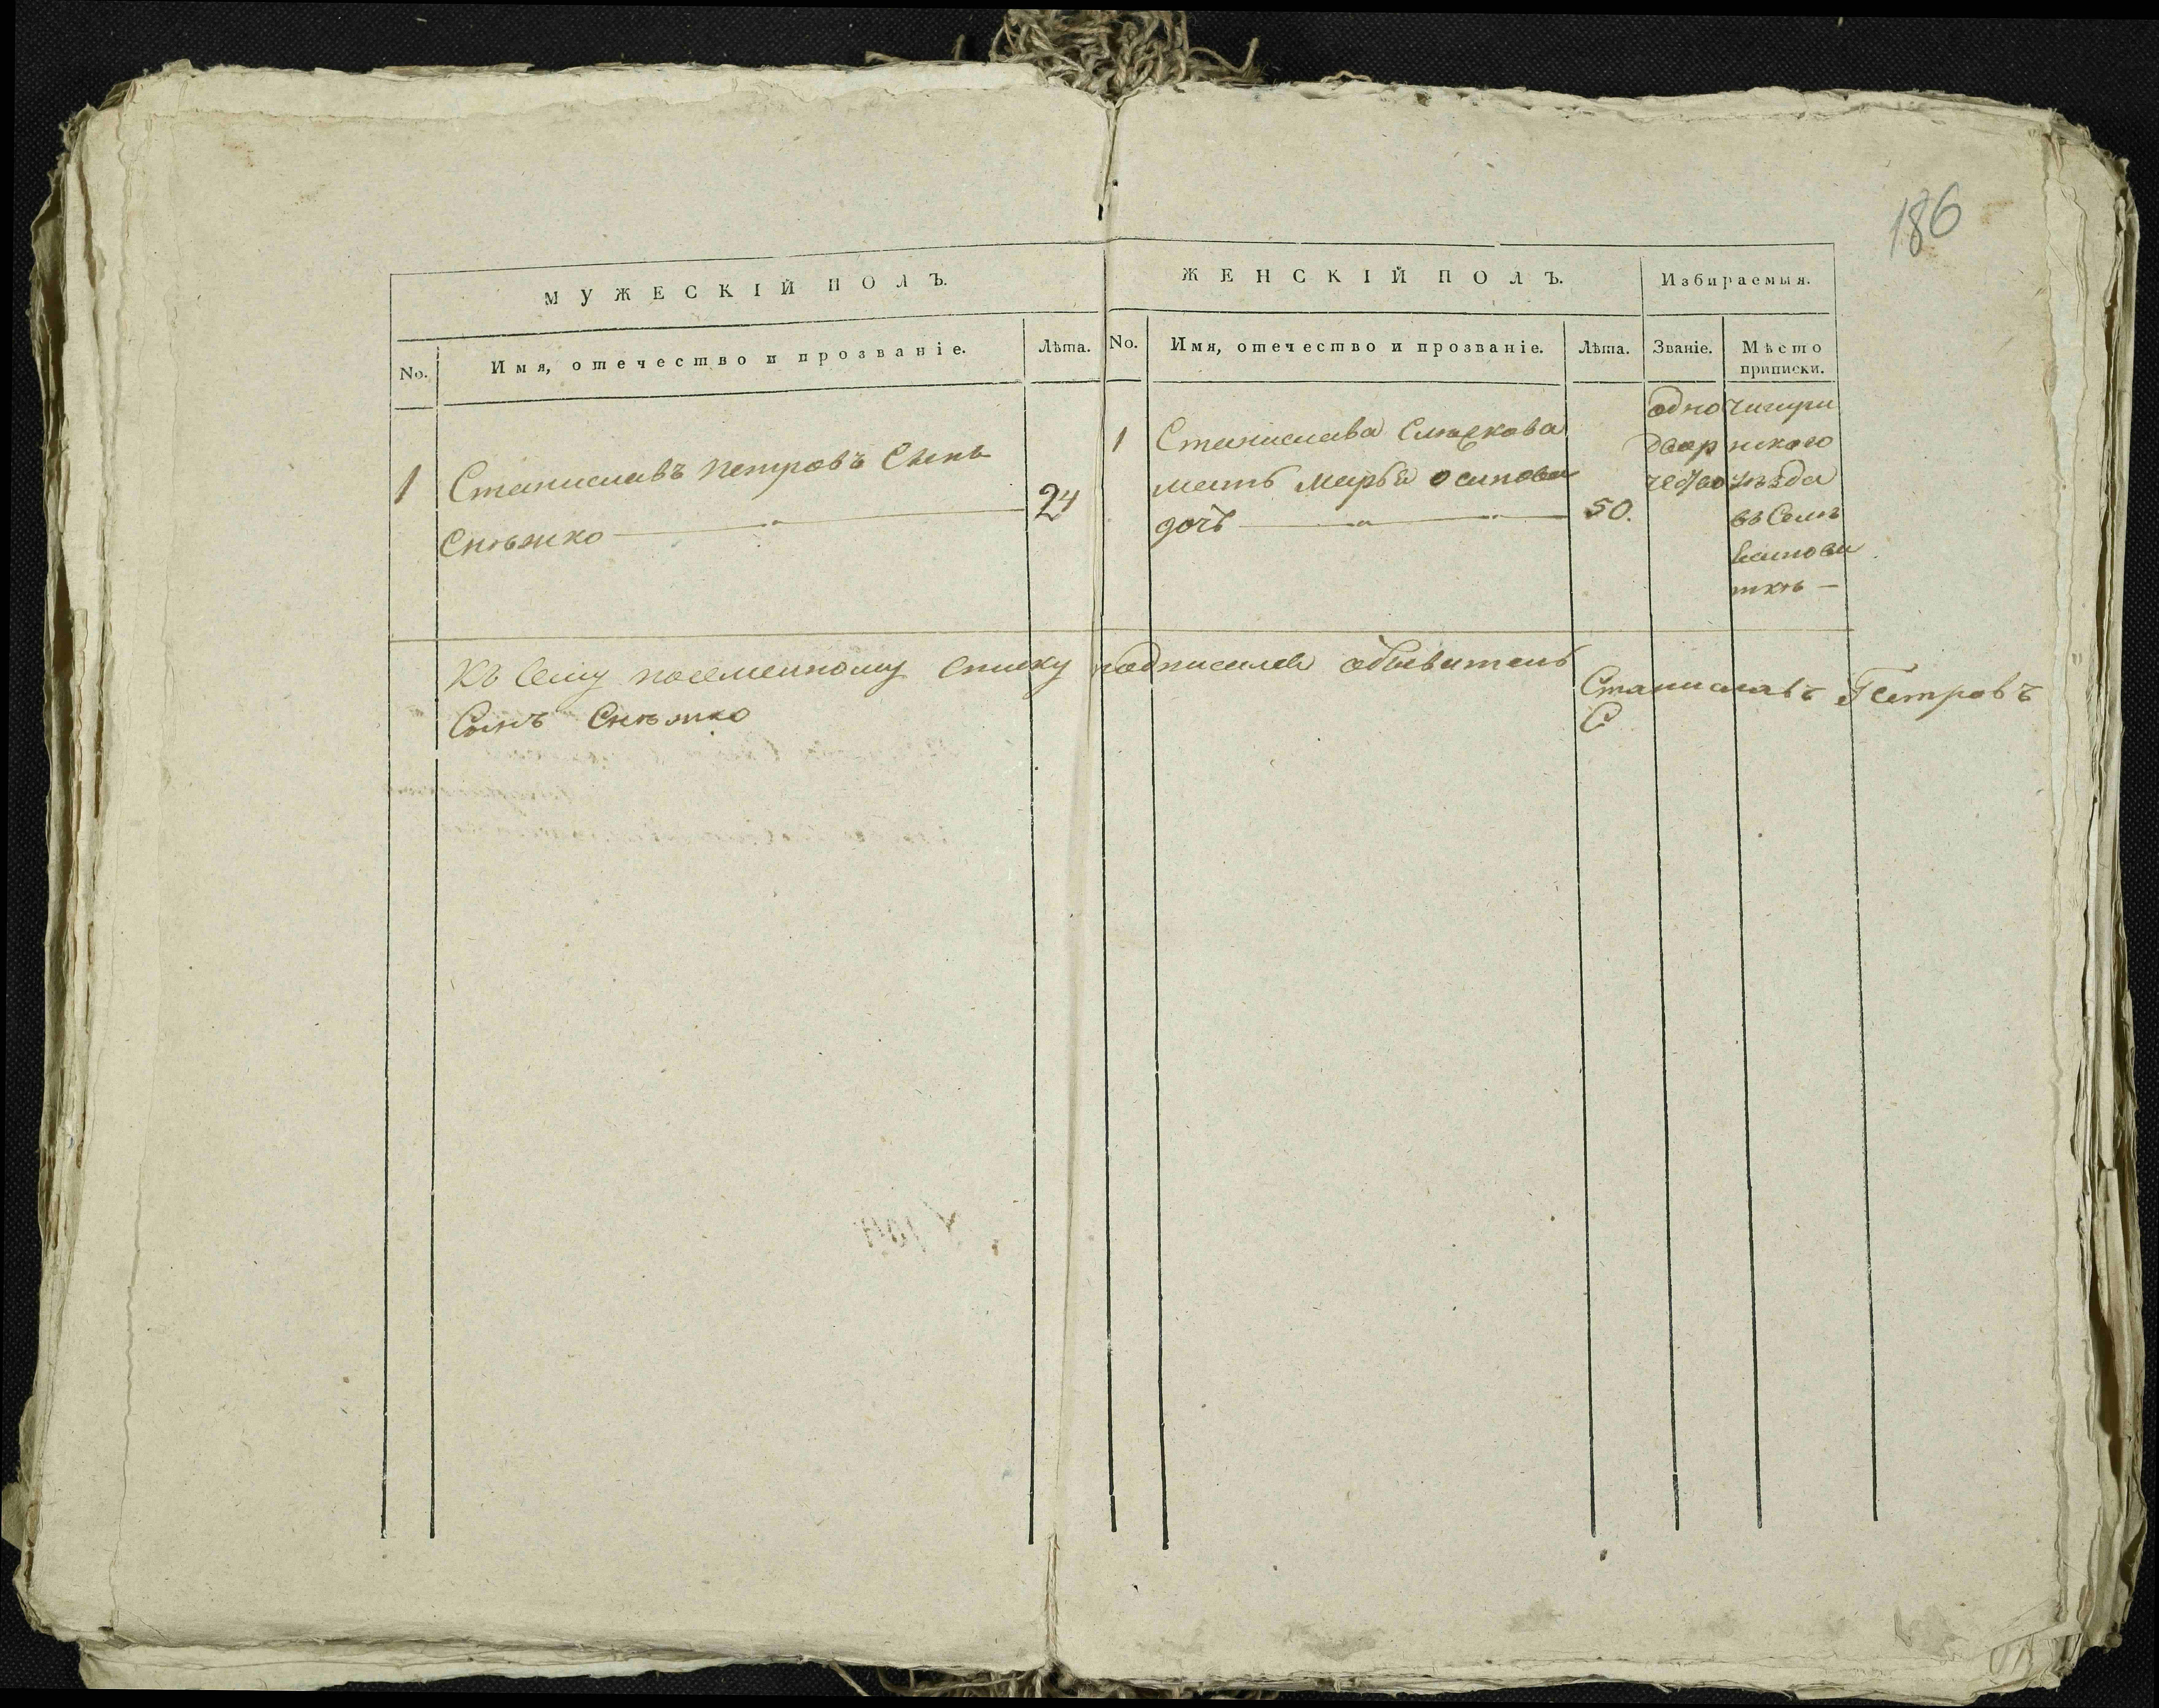 186
МУЖЕСКІЙ ПОЛЪ.
ЖЕНСКІЙ ПОЛЪ.
Избираемыя.
No.
Имя, отечество и прозваніе.
Лѣта.
No.
Имя, отечество и прозваніе.
Лѣта.
Званіе.
Мѣсто
приписки.
1
Станиславъ Петровъ Сынъ
Снѣжко
24
1
Станислава Снѣжкова
мать Марья Осипова
дочь
50.
одно
двор
чество
Чигри
нского
уѣзда
въ Селѣ
ткѣ
Къ сему посеменному списку подписался объявитель
Станиславъ Петровъ
Сынъ Снѣжко
С